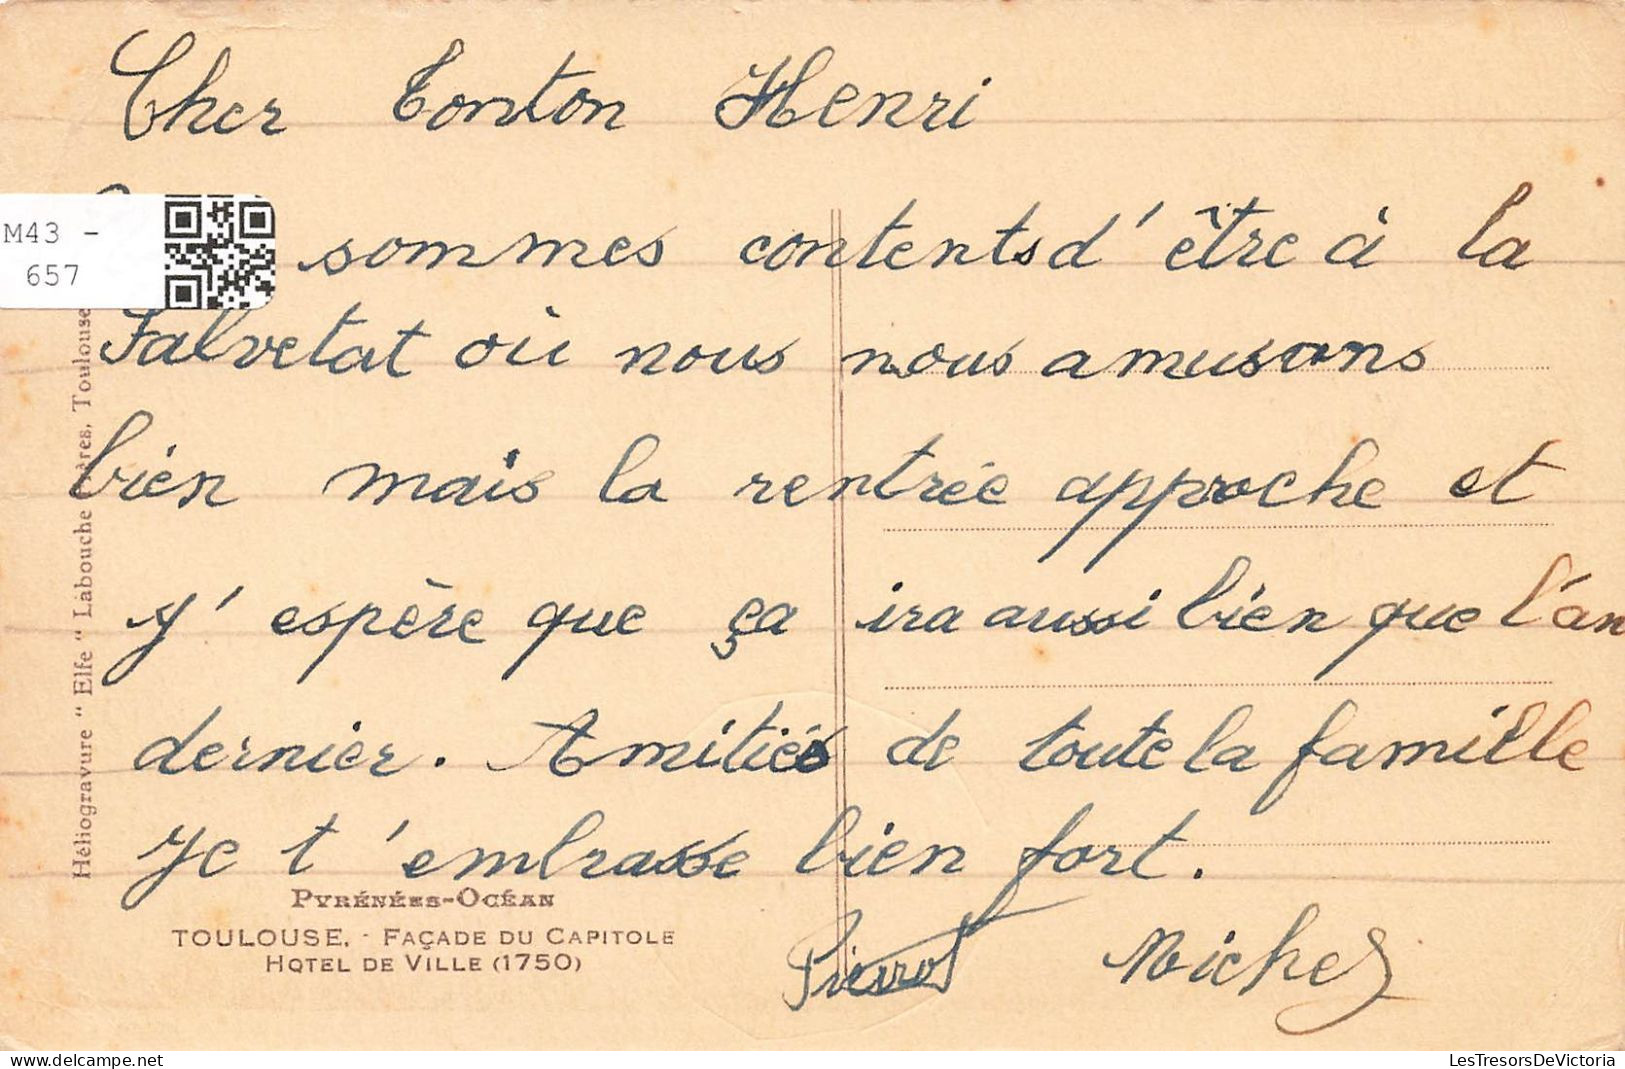 Cher Tonton Henri
sommes contents d'être à la
Salvetat où nous nous amusons
bien mais la rentrée approche et
j'espère que ça ira aussi bien que l'an
dernier. Amitiés de toute la famille
Je t'embrasse bien fort.
Pierrot Michel
PYRÉNÉES-OCÉAN
TOULOUSE. - FAÇADE DU CAPITOLE
HOTEL DE VILLE (1750)
Héliogravure “ Elfe “ Labouche Toulouse
M43 -
657
delcampe.net
LesTresorsDeVictoria